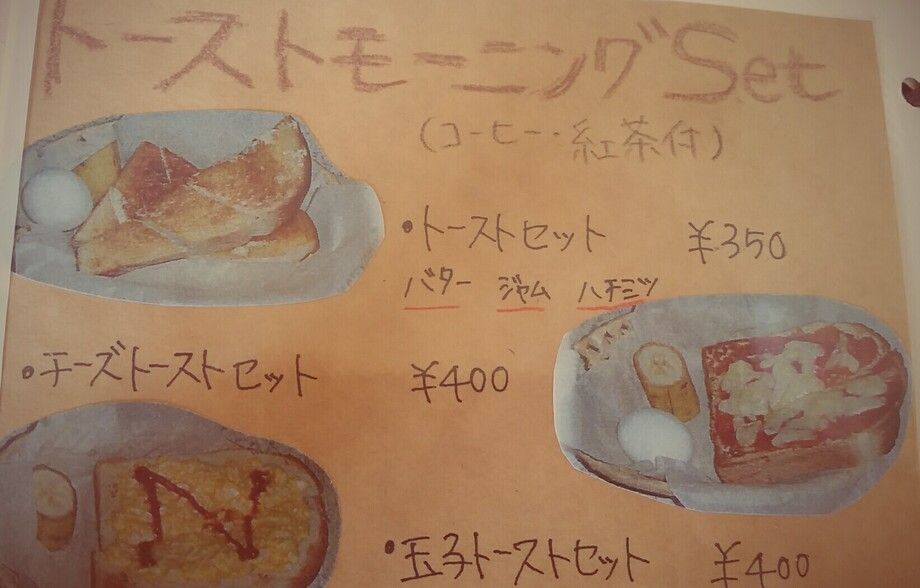 トーストモーニングSet
(コーヒー・紅茶付)
・トーストセット ¥350
バター ジャム ハチミツ
・チーズトーストセット ¥400
N
・玉子トーストセット ¥400